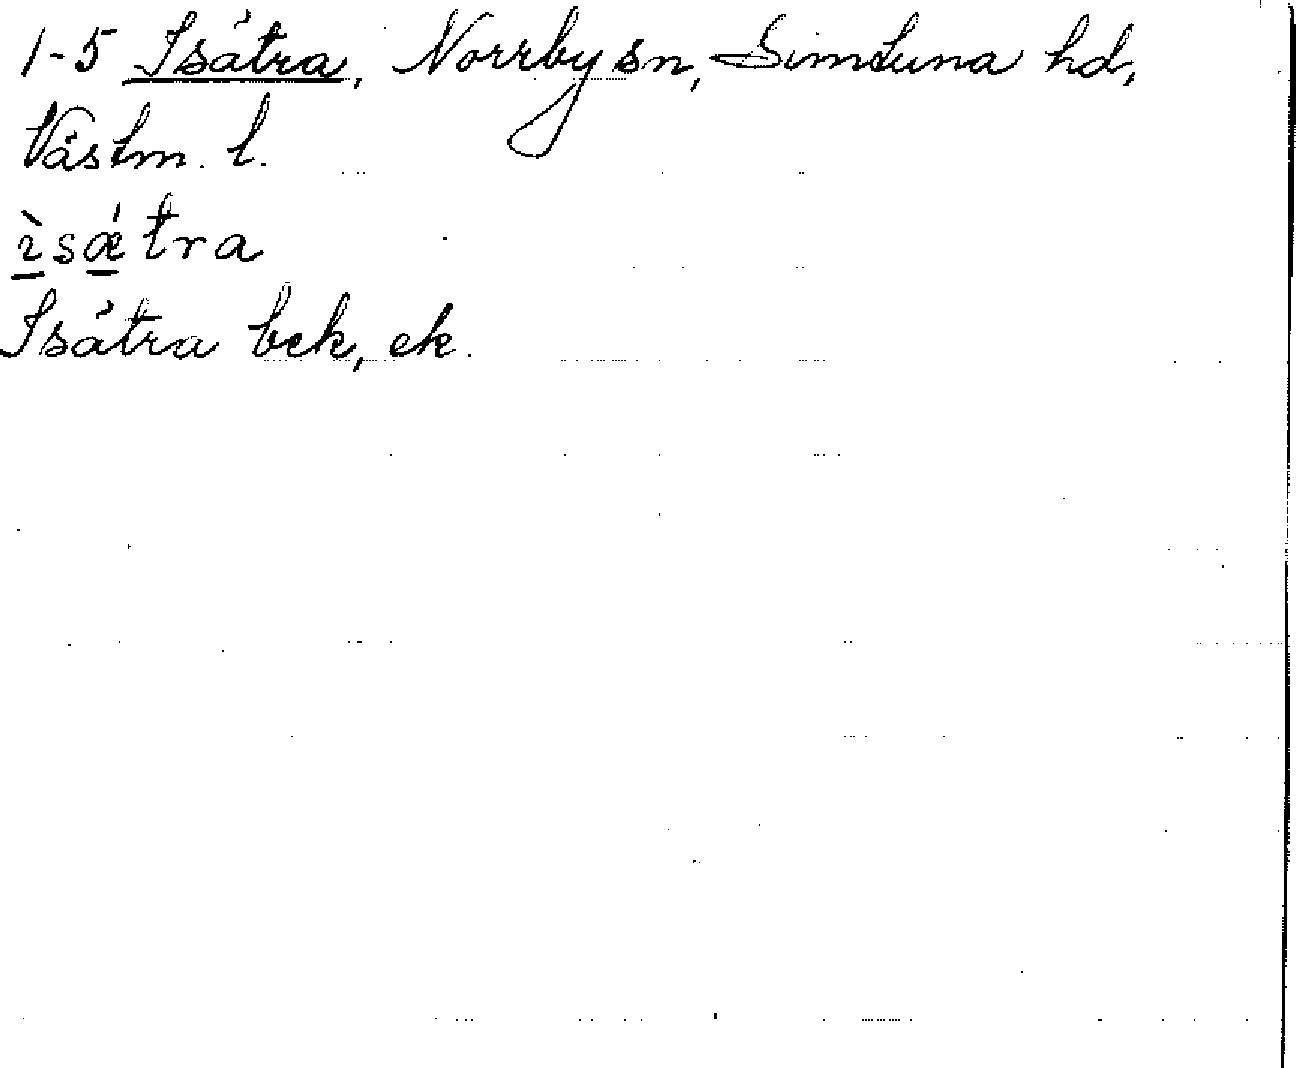 1-5 Isätra, Norrby sn, Simtuna hd,
Västm. l.
ı̱̀sǽ̱tra
Isätra bek, ek.